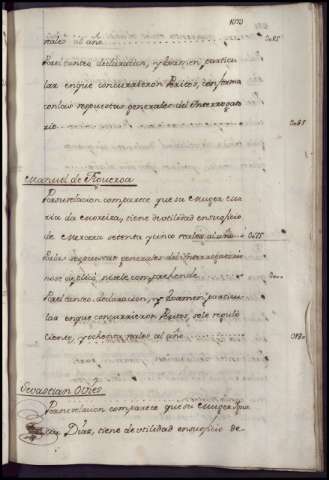 reales al año 2085
Por el tanteo declaracion, y Examen particu
lar en que concurrieron Peritos, conforma
con las respuestas generales del Interrogato
rio 2085
Manuel de Figueroa
Por su relacion comparece que su Muger Ma
ria da Correira, tiene de utilidad en su oficio
de Mercera setenta y cinco reales al año 0075
Por las respuestas generales del Interrogatorio
no se explicó, ni se le comprehende
Por el tanteo declaracion, y Examen particu
lar en que concurrieron Peritos, se le reguló
ciento, y ochenta reales al año 0180
Sevastian
Por su relacion comparece que su Muger
Diaz, tiene de utilidad en su oficio de